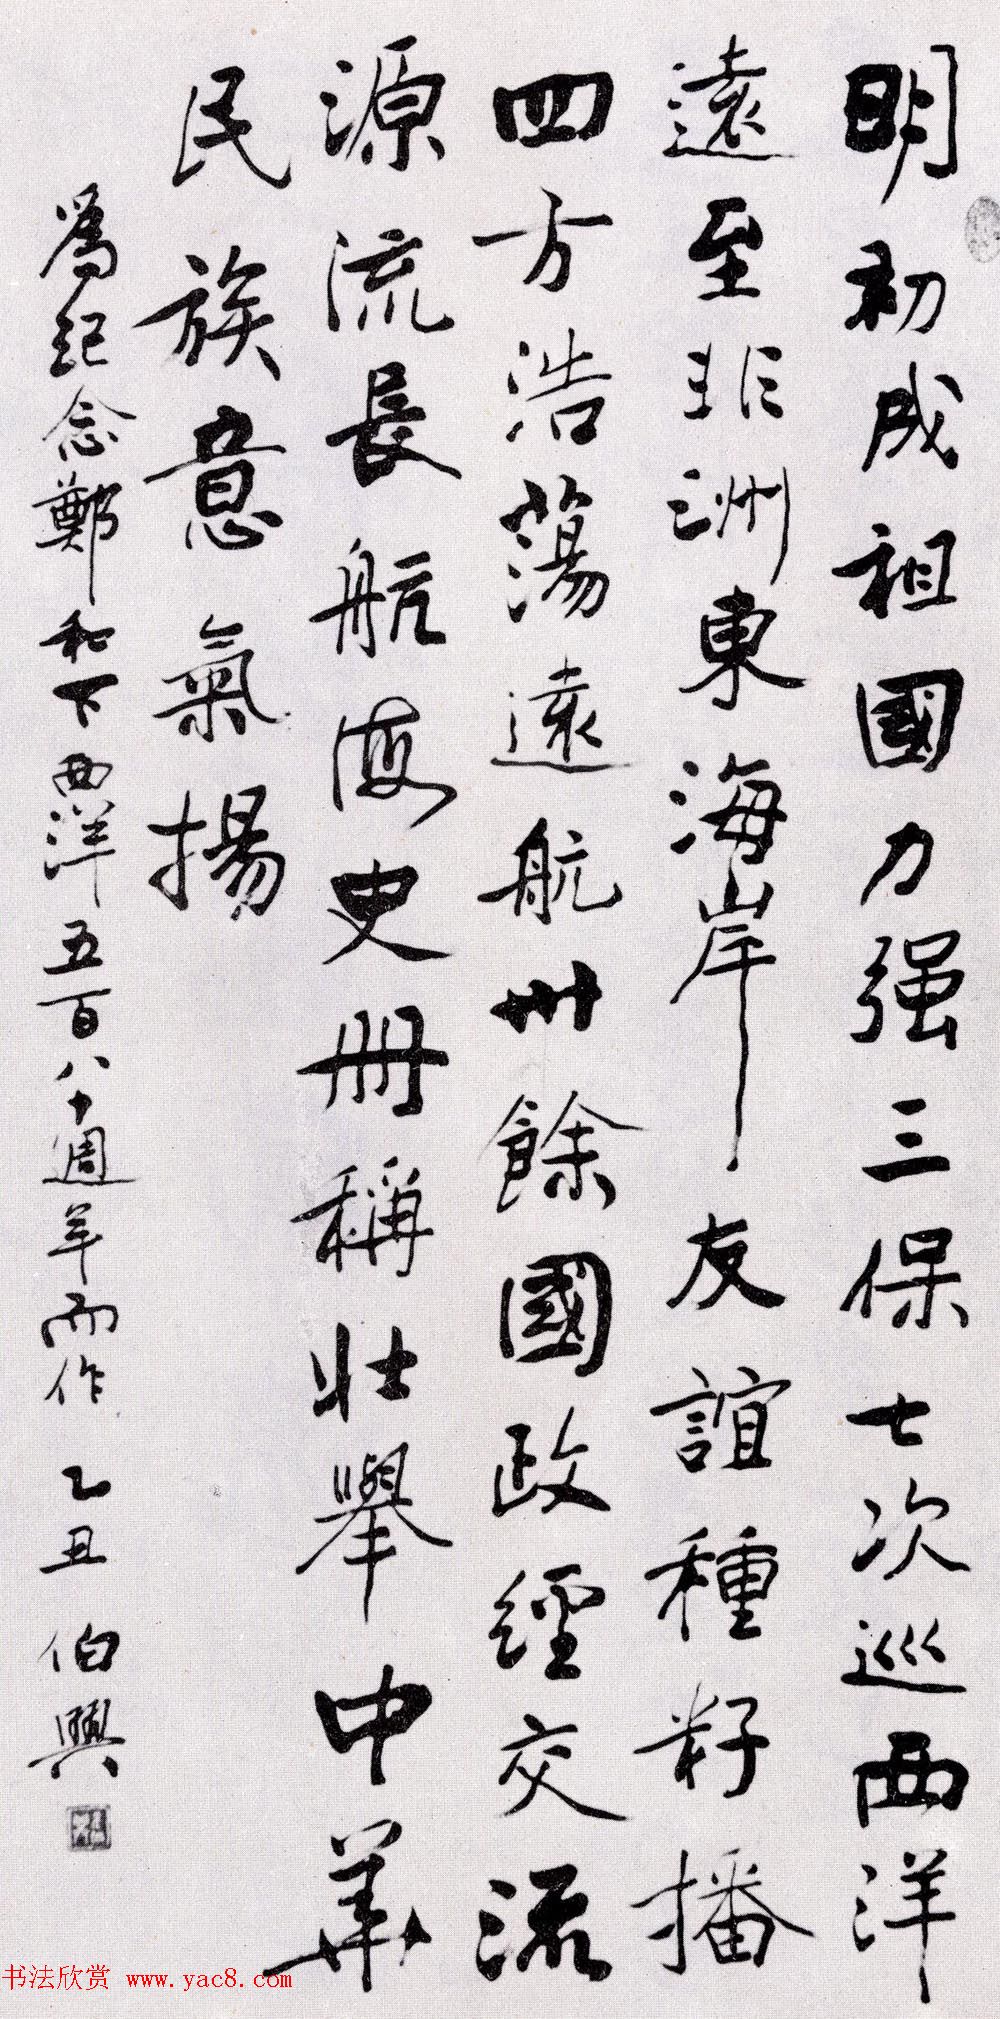 明初成祖國力强三保七次巡西洋
遠至非洲東海岸友誼種籽播
四方浩蕩遠航卅餘國政經交流
源流長航海史册稱壯舉中華
民族意氣揚
爲紀念鄭和下西洋五百八十週年而作 乙丑 伯興
书法欣赏 www.yac8.com